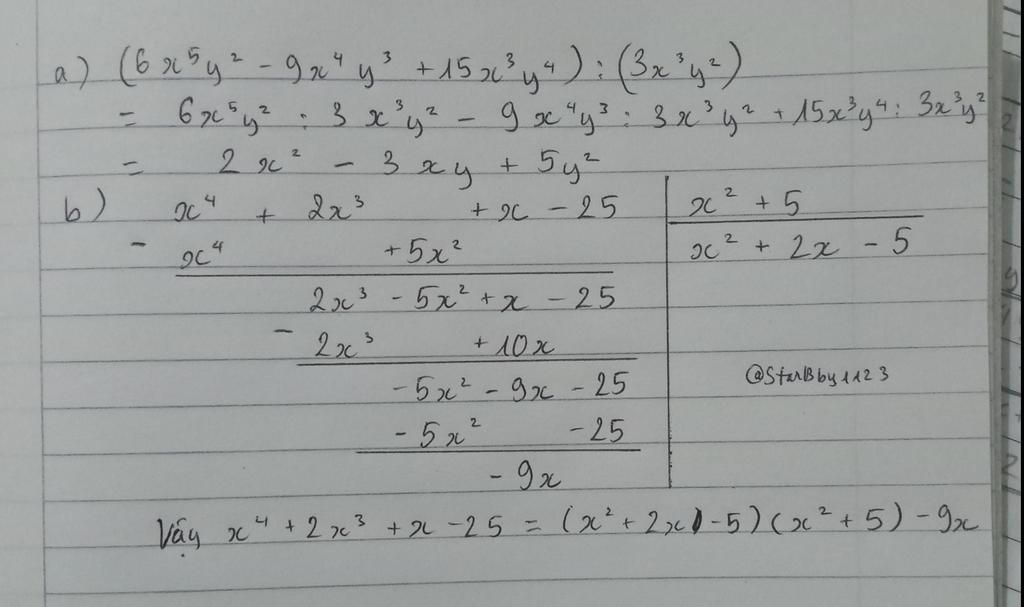 a) (6x⁵y² - 9x⁴y³ + 15x³y⁴) : (3x³y²)
= 6x⁵y² : 3x³y² - 9x⁴y³ : 3x³y² + 15x³y⁴ : 3x³y²
= 2x² - 3xy + 5y²
b) x⁴ + 2x³ + x - 25 | x² + 5
- x⁴ + 5x² | x² + 2x - 5
2x³ - 5x² + x - 25
- 2x³ + 10x
-5x² - 9x - 25
@StarBby1123
-5x² - 25
-9x
Vậy x⁴ + 2x³ + x - 25 = (x² + 2x - 5)(x² + 5) - 9x